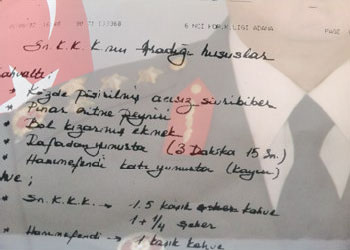 6 NCI ADANA
Sn. K.K.K.nın Aradığı hususlar
ahvaltı:
* Közde pişirilmiş acısız sivribiber
* Pınar peyniri
* Bol kızarmış ekmek
* Rafadan yumurta (3 Dakika 15 Sn.)
* Hanımefendi katı yumurta (Kayın)
ve;
* Sn. K.K.K. - 1.5 kaşık kahve
1 + 1/4 şeker
* Hanımefendi - 1 kaşık kahve